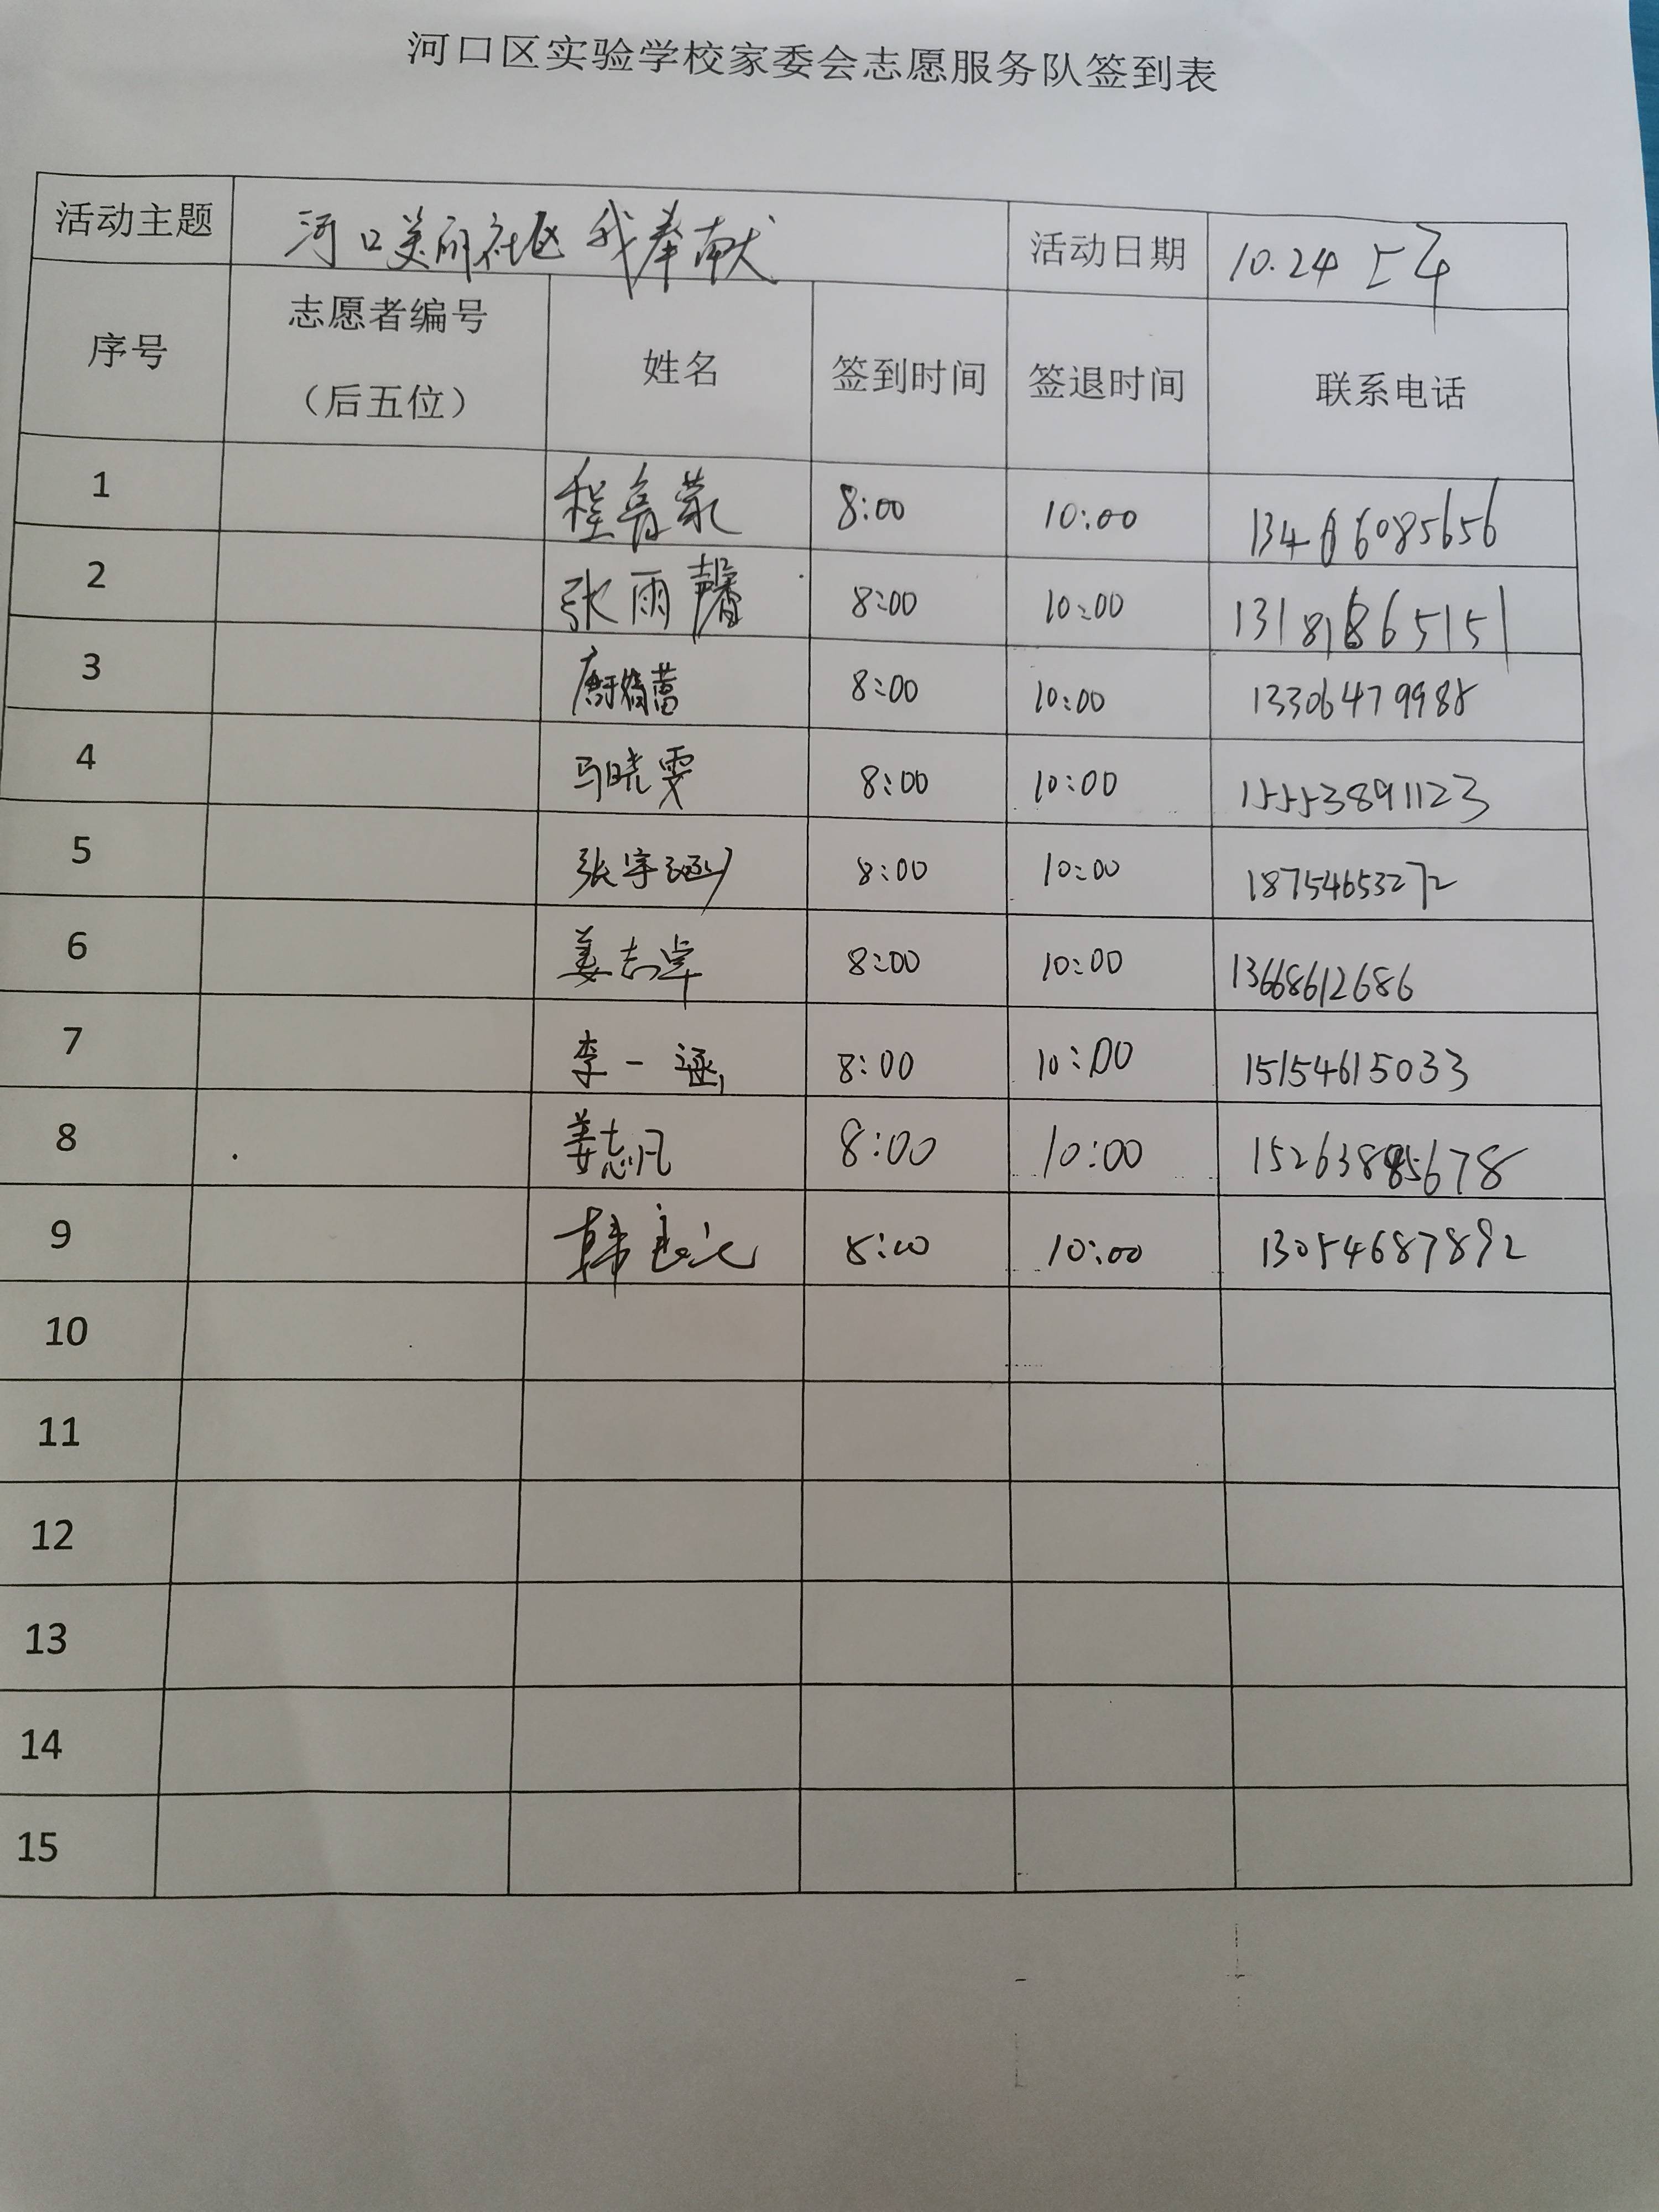 河口区实验学校家委会志愿服务队签到表
活动主题 河口美丽社区 我奉献 活动日期 10.24 上午
序号 志愿者编号（后五位） 姓名 签到时间 签退时间 联系电话
1 程鲁蒙 8:00 10:00 13466085656
2 张雨馨 8:00 10:00 13181865151
3 8:00 10:00 13306479988
4 马晓雯 8:00 10:00 15553891123
5 张宇涵 8:00 10:00 18754653272
6 姜志卓 8:00 10:00 13668612686
7 李一涵 8:00 10:00 15154615033
8 姜志凡 8:00 10:00 15263885678
9 韩 8:00 10:00 13054687892
10
11
12
13
14
15